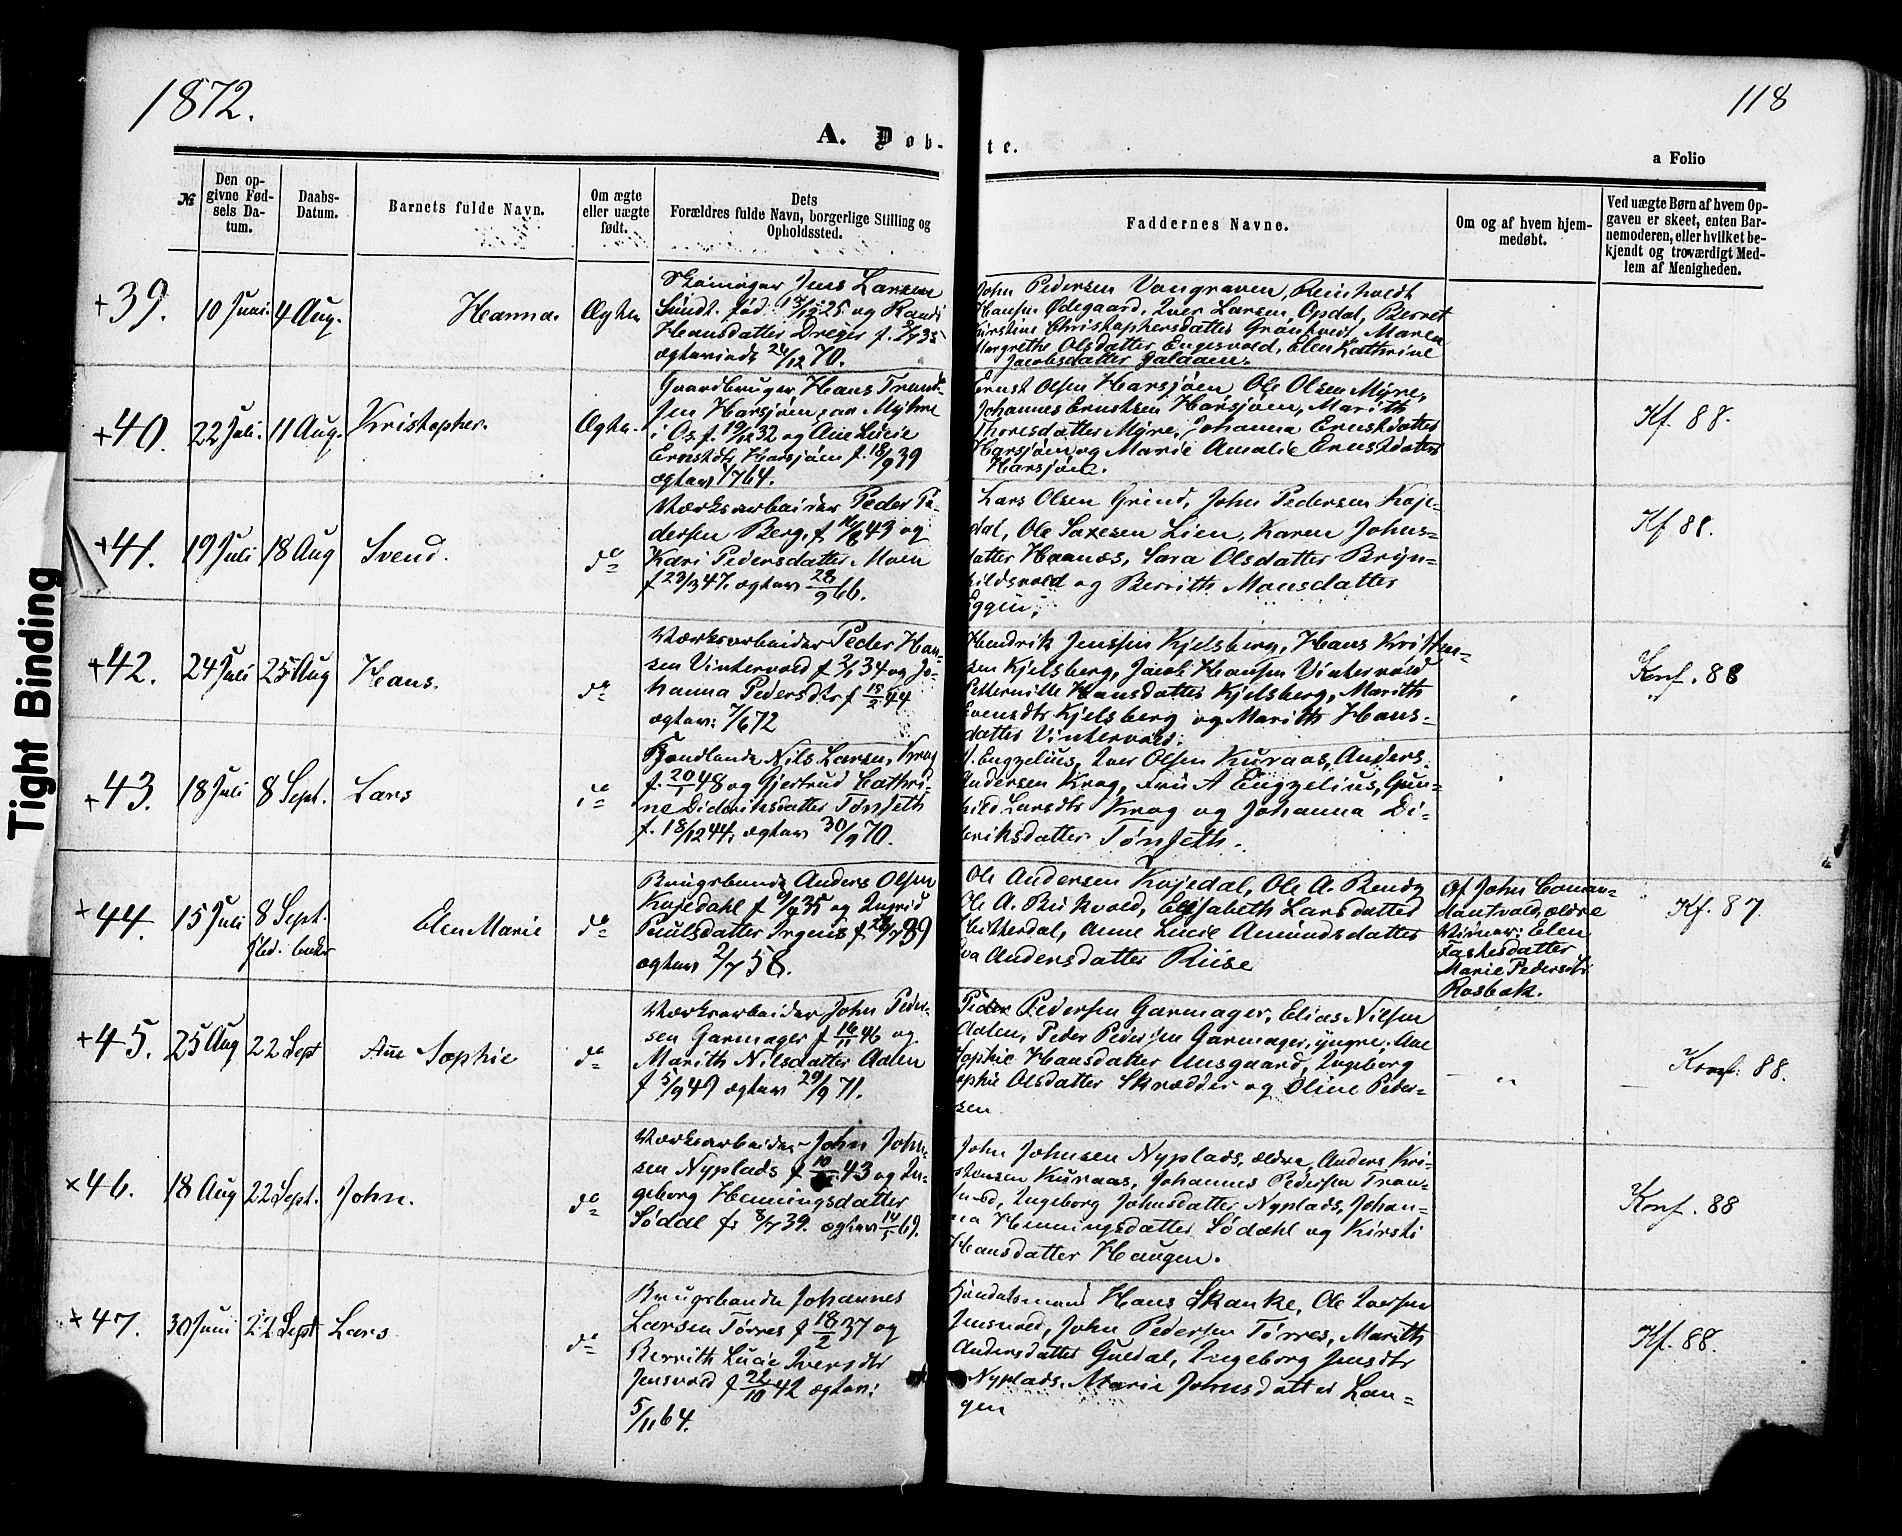 1872.
118
A. Døb-
te.
a Folio
№
Den op-
givne Fød-
sels Da-
tum.
Daabs-
Datum.
Barnets fulde Navn.
Om ægte
eller uægte
født.
Dets
Forældres fulde Navn, borgerlige Stilling og
Opholdssted.
Faddernes Navne.
Om og af hvem hjem-
medøbt.
Ved uægte Børn af hvem Op-
gaven er skeet, enten Bar-
nemoderen, eller hvilket be-
kjendt og troværdigt Med-
lem af Menigheden.
+39. 10 Juni. 4 Aug. Hanna. Ægte
Jens Larsen
Sundt. fød 13/12 25 og Randi
Hansdatter Dreyer f. 35
ægteviede 26/12 70.
John Pedersen Vongraven, Reinholdt
Hansen Ødegaard, Iver Larsen, Opdal, Berret
Kirstine Christophersdatter Grøntvedt, Maren
Margrethe Olsdatter Engesvold, Elen Kathrine
Jacobsdatter Galaaen.
+40. 22 Juli. 11 Aug. Kristopher. Ægte.
Gaardbruger Hans Trond-
sen Harsjøen, av Myhre
i Os f. 19/12 32 og Ane Lucie
Ernstdtr Harsjøen f. 18/9 39
ægtev. 1764.
Ernst Olsen Harsjøen, Ole Olsen Myre,
Johannes Ernstsen Harsjøen, Marith
Thoresdatter Myre, Johanna Ernstdatter
Harsjøen og Marie Amalie Ernstdatter
Harsjøen.
Kf. 88.
+41. 19 Juli 18 Aug Svend. do
Værksarbeider Peder Pe-
dersen Berg, f 10/6 43 og
Kari Pedersdatter Moen
f 23/3 47. ægtev 28/9 66.
Lars Olsen Grind, John Pedersen Koje-
dal, Ole Saxesen Lien, Karen Johns-
datter Haanæs, Sara Olsdatter Bryn-
hildsvold og Berrith Monsdatter
Eggen,
Kf 88.
+42. 24 Juli 25 Aug Hans. do
Værksarbeider Peder Han-
sen Vintervold f 2/1 34 og Jo-
hanna Pedersdtr f 15/2 44
ægtev: 7/6 72
Hendrik Jenssen Kjelsberg, Hans Kristen-
sen Kjelsberg, Jacob Hansen Vintervold
Petternille Hansdatter Kjelsberg, Marith
Evensdtr Kjelsberg og Marith Hans-
datter Vintervold.
Konf. 88
+43. 18 Juli 8 Sept. Lars do
Nils Larsen Krog
f. 20/1 48 og Gjertrud Cathri-
ne Didriksdatter Tønseth
f. 18/12 44, ægtev 30/9 70.
Engzelius, Iver Olsen Kuraas, Anders
Andersen Krog, Fru A Engzelius, Gun-
hild Larsdtr Krog og Johanna Di-
deriksdatter Tønseth.
+44. 15 Juli 8 Sept. Elen Marie do
Brugsbonde Anders Olsen
Kojedahl f 9/4 35 og Ingrid
Poulsdatter Irgens f 26/7 39
ægtev 2/7 58.
Ole Andersen Kojedal, Ole A. Rendy
Ole A. Birkvold, Elisabeth Larsdatter
Hitterdal, Anne Lucie Amundsdatter
Eva Andersdatter Riise
Af John Coman-
dantvold, ældre
Vidner: Elen
Marie Pedersdtr
Rosbak.
Kf. 87.
+45. 25 Aug 22 Sept Ane Sophie do
Værksarbeider John Peder-
sen Garmager f 16/11 46 og
Marith Nilsdatter Aalen
f 5/9 49 ægtev 29/9 71.
Peder Pedersen Garmager, Elias Nilsen
Aalen, Peder Pedersen Garmager, yngre, Ane
Sophie Hansdatter Ansgaard, Ingeborg
Sophie Olsdatter Skrædder og Oline Peder-
sen
Konf. 88.
×46. 18 Aug 22 Sept. John. do
Værksarbeider John John-
sen Nyplads f 10/ 43 og In-
geborg Henningsdatter
Sødal f: 8/7 39. ægtev 14/5 69.
John Johnsen Nyplads, ældre, Anders Kri-
stensen Kuraas, Johannes Pedersen Tron-
Ingeborg Johnsdatter Nyplads, Johan-
na Henningsdatter Sødahl og Kirsti
Hansdatter Haugen.
Konf. 88
×47. 30 Juni 22 Sept Lars do
Brugsbonde Johannes
Larsen Tørres f 18/2 37 og
Berrith Lucie Iversdtr
Jensvold f 22/10 42 ægtev:
5/11 64.
Hans Skanke, Ole Iversen
Jensvold, John Pedersen Tørres, Marith
Andersdatter Guldal, Ingeborg Jensdtr
Nyplads, Marie Johnsdatter Lan-
gen
Kf. 88.
Tight Binding